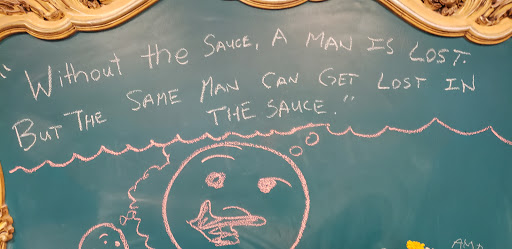 "Without the Sauce, A Man Is Lost.
But The Same Man Can Get Lost In
The Sauce."
AMA